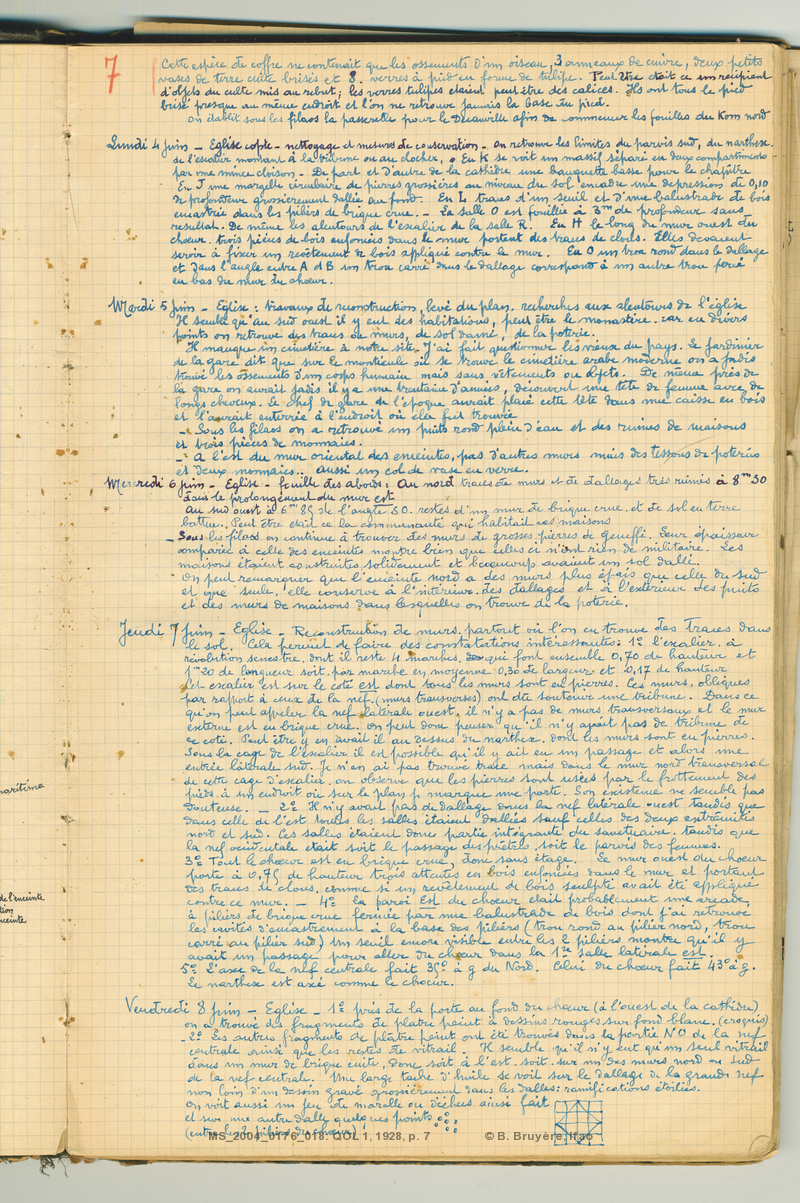 7
Cette espèce de coffre ne contenait que les ossements d'un oiseau, 3 anneaux de cuivre, deux petits
vases de terre cuite brisés et 8. verres à pied en forme de tulipe. Peut être était ce un récipient
d'objets du culte mis au rebut; les verres tulipes étaient peut être des calices. Ils ont tous le pied
brisé presque au même endroit et l'on ne retrouve jamais la base du pied.
On établit sous les filaos la passerelle pour le Decauville afin de commencer les fouilles du Kom nord
Lundi 4 Juin _ Eglise copte - nettoyage et mesures de conservation - on retrouve les limites du parvis sud, du narthex.
de l'escalier montant à la tribune ou au clocher, En K se voit un massif séparé en deux compartiments
par une mince cloison - De part et d'autre de la cathèdre une banquette basse pour le chapître
En J une margelle circulaire de pierres grossières au niveau du sol encadre une dépression de 0,10
de profondeur grossièrement dallée au fond. En L traces d'un seuil et d'une balustrade de bois
encastrée dans les piliers de brique crue. - La salle O est fouillée à 3m de profondeur sans
résultat. De même les alentours de l'escalier de la salle R. En H le long du mur ouest du
chœur. trois pièces de bois enfoncées dans le mur portent des traces de clous. Elles devaient
servir à fixer un revêtement de bois appliqué contre le mur. En D un trou rond dans le dallage
et dans l'angle entre A et B un trou carré dans le dallage correspond à un autre trou percé
en bas du mur du chœur.
Mardi 5 Juin - Eglise: travaux de reconstruction, levé du plan. recherches aux alentours de l'église
Il semble qu'au sud ouest il y eut des habitations, peut être le monastère. car en divers
points on retrouve des traces de murs, de sol damé, de la poterie.
Il manque un cimetière à notre site. J'ai fait questionner les vieux du pays. Le jardinier
de la gare dit que sur le monticule où se trouve le cimetière arabe moderne on a jadis
trouvé les ossements d'un corps humain mais sans vêtements ou objets. De même près de
la gare on aurait jadis il y a une trentaine d'années, découvert une tête de femme avec de
longs cheveux. Le chef de gare de l'époque aurait placé cette tête dans une caisse en bois
et l'aurait enterrée à l'endroit où elle fut trouvée
- Sous les filaos on a retrouvé un puits rond plein d'eau et des ruines de maisons
et trois pièces de monnaies.
- A l'est du mur oriental des enceintes, pas d'autres murs mais des tessons de poteries
et deux monnaies.. aussi un col de vase en verre.
Mercredi 6 juin - Eglise - fouille des abords: Au nord traces de murs et de dallages très ruinés à 8m30
dans le prolongement du mur est
Au sud ouest à 6m85 de l'angle S.O. restes d'un mur de brique crue. et de sol en terre
battue. Peut être était ce la communauté qui habitait ces maisons
_ Sous les filaos on continue à trouver des murs de grosses pierres de geneffé. Leur épaisseur
comparée à celle des enceintes montre bien que celles ci n'ont rien de militaire. Les
maisons étaient construites solidement et beaucoup avaient un sol dallé.
On peut remarquer que l'enceinte nord a des murs plus épais que celle du sud
et que seule, elle conserve à l'intérieur des dallages et à l'extérieur des puits
et des murs de maisons dans lesquelles on trouve de la poterie.
Jeudi 7 Juin - Eglise - Reconstruction de murs. partout où l'on en trouve des traces dans
le sol. Cela permet de faire des constatations intéressantes: 1º l'escalier. à
révolution senestre, dont il reste 4 marches, qui font ensemble 0,70 de hauteur et
1m20 de longueur soit par marche en moyenne 0,30 de largeur et 0,17 de hauteur
Cet escalier est sur le côté est dont tous les murs sont en pierres. Ces murs, obliques
par rapport à ceux de la nef, (murs transverses) ont dû soutenir une tribune. Dans ce
qu'on peut appeler la nef latérale ouest, il n'y a pas de murs transversaux et le mur
externe est en brique crue. On peut donc penser qu'il n'y avait pas de tribune de
ce côté. Peut être y en avait il au dessus du narthex. dont les murs sont en pierres.
Sous la cage de l'escalier il est possible qu'il y ait eu un passage et alors une
entrée latérale sud. Je n'en ai pas trouvé trace mais dans le mur nord transversal
de cette cage d'escalier, on observe que les pierres sont usées par le frottement des
pieds à un endroit où sur le plan je marque une porte. Son existence ne semble pas
douteuse. - 2º Il n'y avait pas de dallage dans la nef latérale ouest tandis que
dans celle de l'est toutes les salles étaient dallées sauf celles des deux extrémités
nord et sud. Ces salles étaient donc partie intégrante du sanctuaire. tandis que
la nef occidentale était soit le passage des prêtres, soit le parvis des femmes.
3º Tout le chœur est en brique crue, donc sans étage. Le mur ouest du chœur
porte à 0,75 de hauteur trois attentes en bois enfoncées dans le mur et portant
des traces de clous. comme si un revêtement de bois sculpté avait été appliqué
contre ce mur. - 4º La paroi Est du chœur était probablement une arcade
à piliers de brique crue fermée par une balustrade de bois dont j'ai retrouvé
les cavités d'encastrement à la base des piliers (trou rond au pilier nord, trou
carré au pilier sud) Un seuil encore visible entre les 2 piliers montre qu'il y
avait un passage pour aller du chœur dans la 1re salle latérale est.
5º L'axe de la nef centrale fait 35º à g du Nord. Celui du chœur fait 43º à g.
Le narthex est axé comme le chœur.
Vendredi 8 Juin - Eglise - 1º près de la porte au fond du chœur (à l'ouest de la cathèdre)
on a trouvé des fragments de plâtre peint à dessins rouges sur fond blanc. (croquis)
- 2º Les autres fragments de plâtre peint ont été trouvés dans la partie NO de la nef
centrale ainsi que les restes de vitrail. Il semble qu'il n'y eut qu'un seul vitrail
dans un mur de brique cuite, donc soit à l'est, soit sur un des murs nord ou sud
de la nef centrale. Une large tache d'huile se voit sur le dallage de la grande nef
non loin d'un dessin gravé grossièrement dans les dalles: ramifications étoilées.
On voit aussi un jeu de marelle ou d'échecs ainsi fait
et sur une autre dalle quelques points
(entre les 2 piliers du chœur)
aritime
de l'enceinte
tion
nceinte
MS_2004_0176_018: QOL 1, 1928, p. 7 © B. Bruyère, Ifao